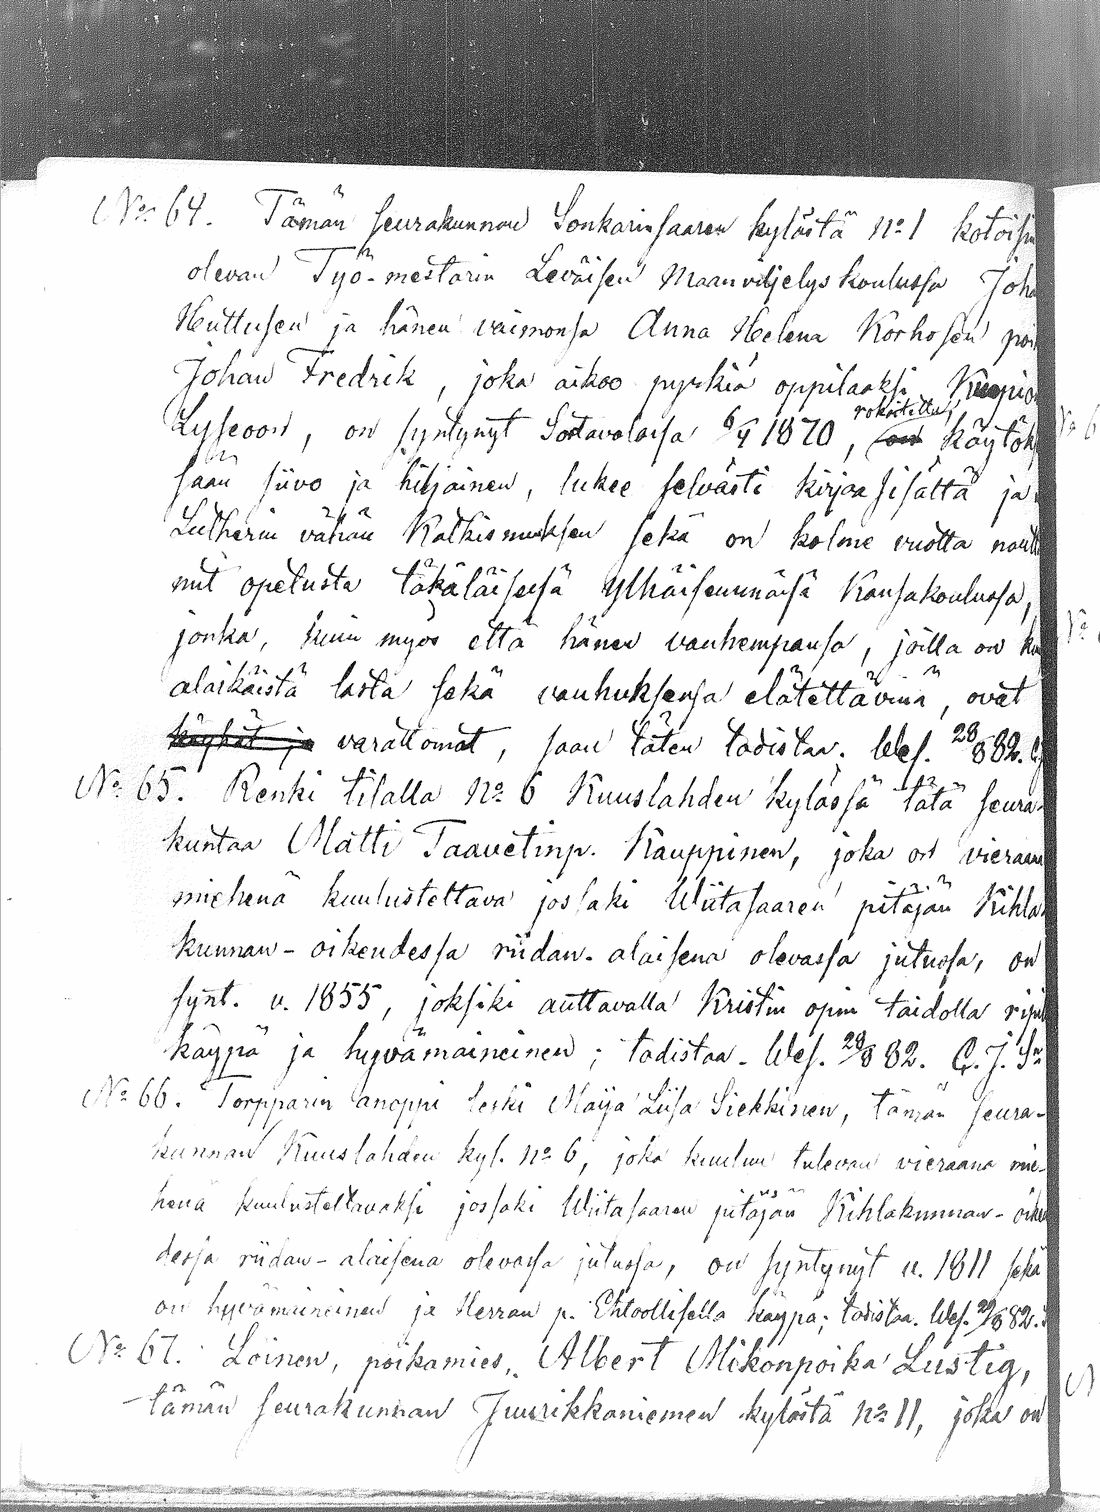 No 64. Tämän seurakunnan Sonkarinsaaren kylästä no 1 kotoisin
olevan Työ-mestarin Leväisen Maanviljelyskoulussa Joha
Huttusen ja hänen vaimonsa Anna Helena Korhosen poi
Johan Fredrik, joka aikoo pyrkiä oppilaaksi Kuopion
Lyseoon, on syntynyt Sortavalassa 6/4 1870, rokoitettu, on käytök
sään siivo ja hiljainen, lukee selvästi kirjaa sisältä ja
Lutherin vähän Katkismuksen sekä on kolme vuotta nautt
nut opetusta täkäläisessä Ylhäisemmässä Kansakoulussa,
jonka, kuin myös että hänen vanhempansa, joilla on
alaikäistä lasta sekä vanhuksensa elätettävinä, ovat
köyhät ja varattomat, saan täten todistaa. Wes. 28/8 82.
No 65. Renki tilalla No 6 Kuuslahden kylässä tätä seura-
kuntaa Matti Taavetinp. Kauppinen, joka on vieraana
miehenä kuulusteltava jossaki Wiitasaaren pitäjän Kihla
kunnan-oikeudessa riidan-alaisena olevassa jutussa, on
synt. v. 1855, joksiki auttavalla Kristin opin taidolla ripil
käypä ja hyvämaineinen; todistaa. Wes. 28/8 82. C. J. Sn
No 66. Torpparin anoppi leski Maija Liisa Siekkinen, tämän seura-
kunnan Kuuslahden kyl. no 6, joka kuuluu tulevan vieraana mie-
henä kuulusteltavaksi jossaki Wiitasaaren pitäjän Kihlakunnan-oikeu
dessa riidan-alaisena olevassa jutussa, on syntynyt v. 1811 sekä
on hyvämaineinen ja Herran p. Ehtoollisella käypä; todistaa. Wes. 29/8 82.
No 67. Loinen, poikamies, Albert Mikonpoika Lustig,
tämän seurakunnan Juurikkaniemen kylästä no 11, joka on